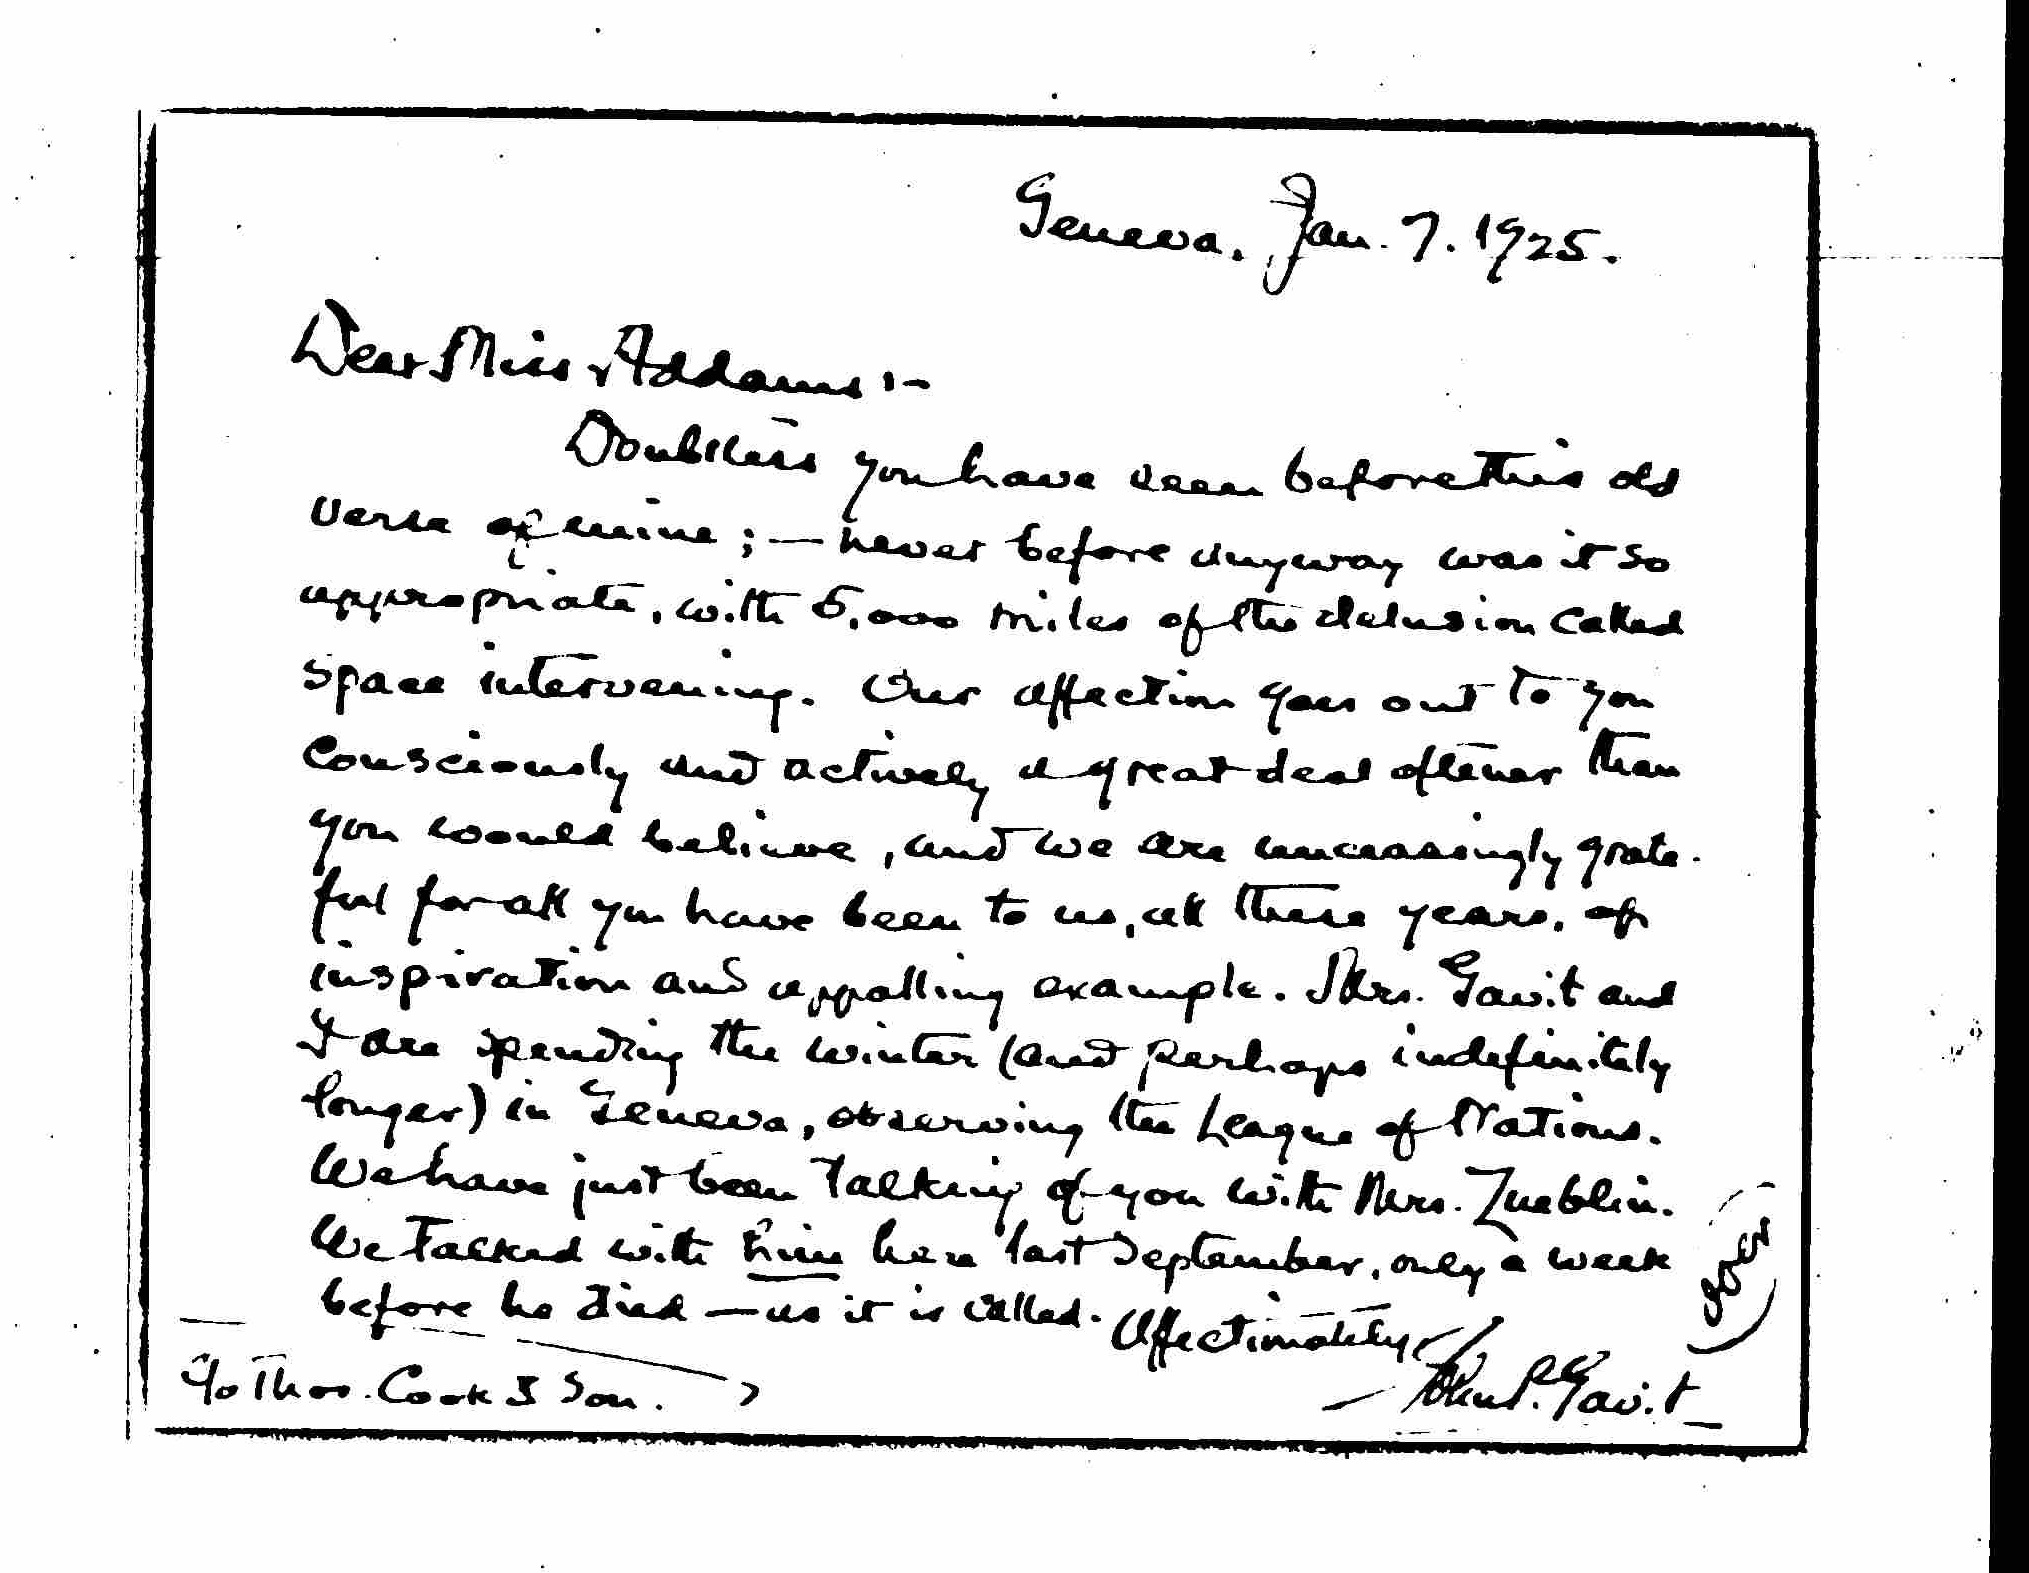 Geneva. Jan. 7. 1925.
Dear Miss Addams:-
Doubtless you have seen before this old
verse of mine; — never before anyway was it so
appropriate, with 5,000 miles of the delusion called
space intervening. Our affection goes out to you
consciously and actively a great deal oftener than
you would believe, and we are unceasingly grate-
ful for all you have been to us, all these years, of
inspiration and appalling example. Mrs. Gavit and
I are spending the winter (and perhaps indefinitely
longer) in Geneva, observing the League of Nations.
We have just been talking of you with Mrs. Zueblin.
We talked with him here last September, only a week
before he died — as it is called. Affectionately
John P. Gavit
c/o Thos. Cook & Son.
over